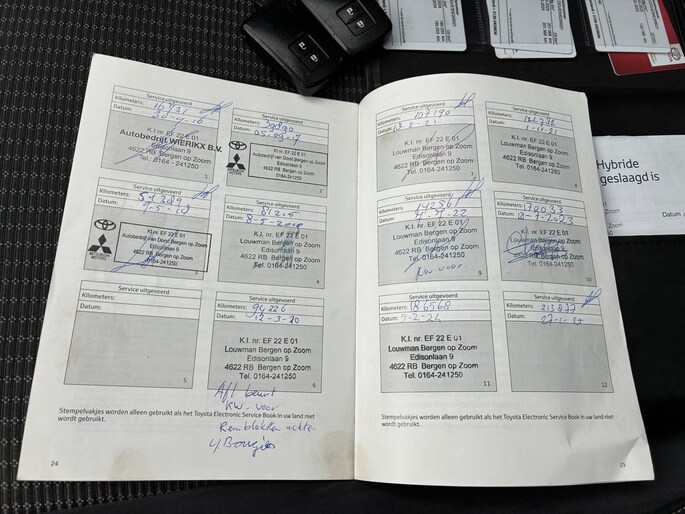 Service uitgevoerd
Kilometers:
Datum:
K.I. nr. EF 22 E 01
Autobedrijf WIERIKX B.V.
Edisonlaan 9
4622 RB Bergen op Zoom
Tel.: 0164-241250
1
Service uitgevoerd
Kilometers:
Datum:
K.I. nr. EF 22 E 01
Autobedrijf van Dorst Bergen op Zoom
Edisonlaan 9
4622 RB Bergen op Zoom
Tel. 0164-241250
2
Service uitgevoerd
Kilometers:
Datum:
K.I. nr. EF 22 E 01
Autobedrijf van Dorst Bergen op Zoom
Edisonlaan 9
4622 RB Bergen op Zoom
Tel. 0164-241250
Service uitgevoerd
Kilometers:
Datum: 8-5-2019
K.I. nr. EF 22 E 01
Louwman Bergen op Zoom
Edisonlaan 9
4622 RB Bergen op Zoom
Tel. 0164-241250
4
Service uitgevoerd
Kilometers:
Datum:
5
Service uitgevoerd
Kilometers: 96226
Datum: 12-3-20
K.I. nr. EF 22 E 01
Louwman Bergen op Zoom
Edisonlaan 9
4622 RB Bergen op Zoom
Tel. 0164-241250
6
Afl beurt
KW-voor
Remblokken achter
4 Bougies
Stempelvakjes worden alleen gebruikt als het Toyota Electronic Service Book in uw land niet
wordt gebruikt.
24
Service uitgevoerd
Kilometers: 107190
Datum:
K.I. nr. EF 22 E 01
Louwman Bergen op Zoom
Edisonlaan 9
4622 RB Bergen op Zoom
Tel. 0164-241250
7
Service uitgevoerd
Kilometers:
Datum:
K.I. nr. EF 22 E 01
Louwman Bergen op Zoom
Edisonlaan 9
4622 RB Bergen op Zoom
Tel. 0164-241250
8
Service uitgevoerd
Kilometers: 142561
Datum:
K.I. nr. EF 22 E 01
Louwman Bergen op Zoom
Edisonlaan 9
4622 RB Bergen op Zoom
Tel. 0164-241250
KW voor
9
Service uitgevoerd
Kilometers:
Datum:
K.I. nr. EF 22 E 01
Louwman Bergen op Zoom
Edisonlaan 9
4622 RB Bergen op Zoom
Tel. 0164-241250
10
Service uitgevoerd
Kilometers: 186568
Datum: 5-2-24
K.I. nr. EF 22 E 01
Louwman Bergen op Zoom
Edisonlaan 9
4622 RB Bergen op Zoom
Tel. 0164-241250
11
Service uitgevoerd
Kilometers: 213877
Datum:
12
Stempelvakjes worden alleen gebruikt als het Toyota Electronic Service Book in uw land niet
wordt gebruikt.
25
Hybride
geslaagd is
Zoom
Datum
Zoom